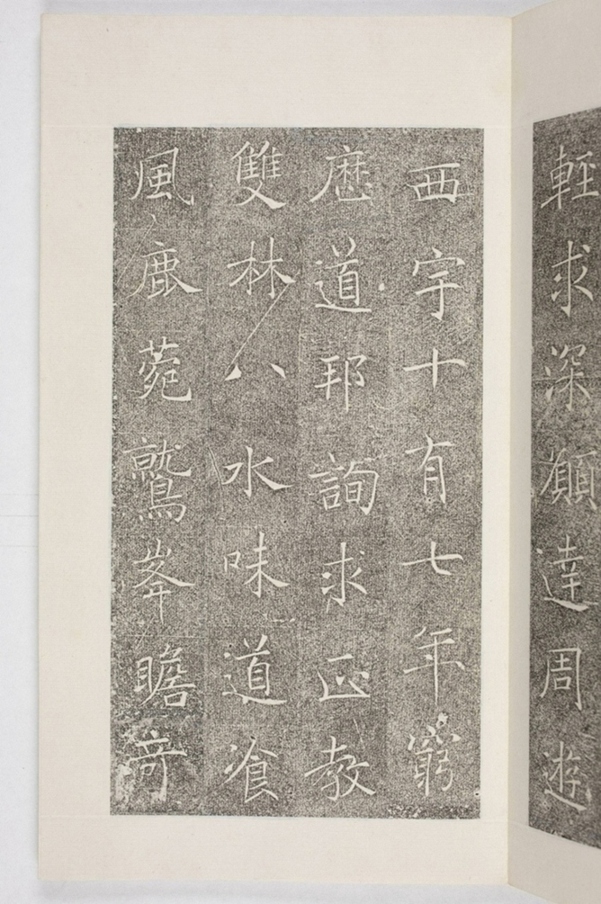 輕求深願達周遊
西宇十有七年窮
歷道邦詢求正教
雙林八水味道飡
風鹿菀鷲峯瞻奇